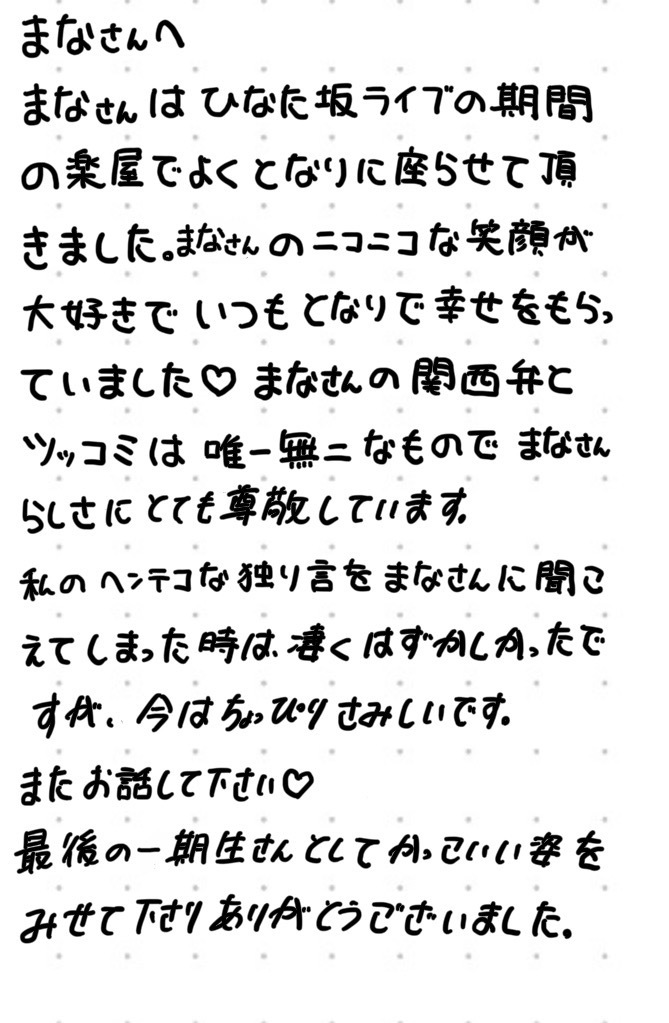 まなさんへ
まなさんは ひなた坂ライブの期間
の楽屋でよくとなりに座らせて頂
きました。まなさんのニコニコな笑顔が
大好きで いつもとなりで幸せをもらっ
ていました♡ まなさんの関西弁と
ツッコミは 唯一無二なもので まなさん
らしさにとても尊敬しています。
私の ヘンテコな独り言をまなさんに聞こ
えてしまった時は、凄くはずかしかったで
すが、今はちょっぴりさみしいです。
またお話して下さい♡
最後の一期生さんとしてかっこいい姿を
みせて下さりありがとうございました。